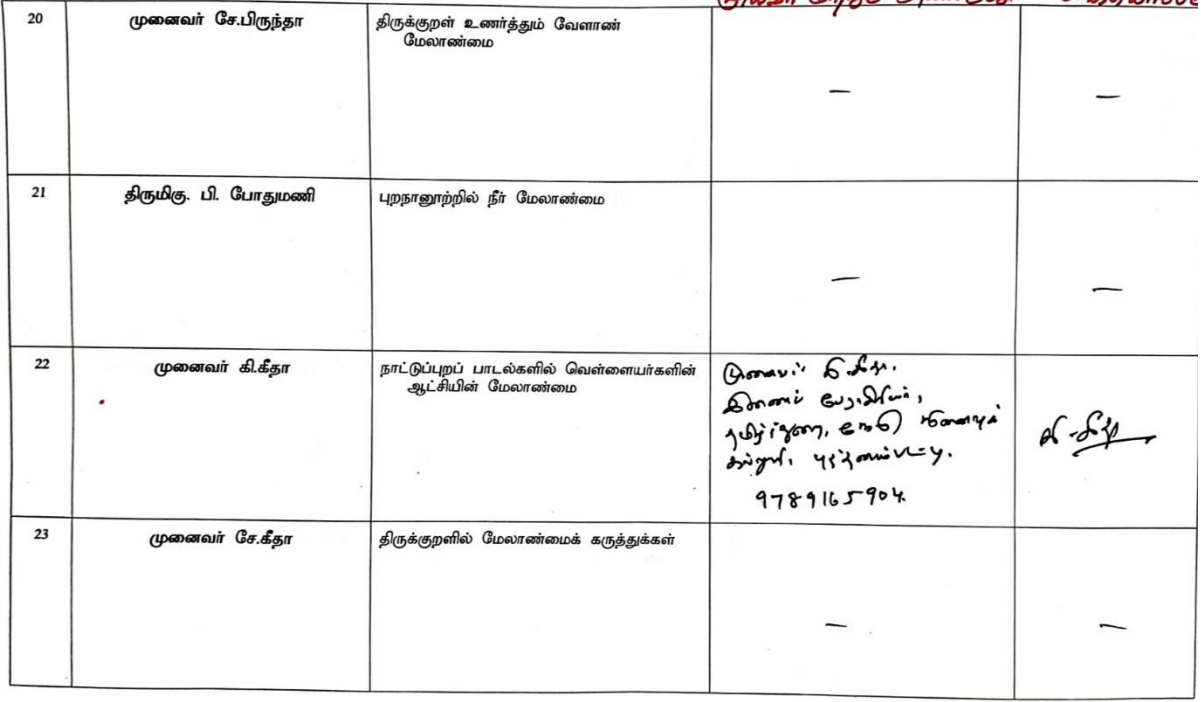 20
முனைவர் சே.பிருந்தா
திருக்குறள் உணர்த்தும் வேளாண்
மேலாண்மை
—
—
21
திருமிகு. பி. போதுமணி
புறநானூற்றில் நீர் மேலாண்மை
—
—
22
முனைவர் கி.கீதா
நாட்டுப்புறப் பாடல்களில் வெள்ளையர்களின்
ஆட்சியின் மேலாண்மை
முனைவர் கி.கீதா.
இணைப் பேராசிரியர்,
தமிழ்த்துறை, நேரு நினைவுக்
கல்லூரி, புத்தனாம்பட்டி.
9789165904.
கி-கீதா
23
முனைவர் சே.கீதா
திருக்குறளில் மேலாண்மைக் கருத்துக்கள்
—
—